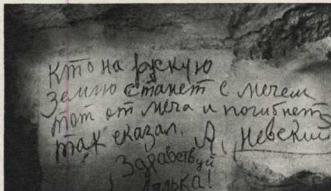 Кто на рускую
землю станет с мечем
тот от меча и погибнет
так сказал. А. Невский
Здравствуй
Лялька!